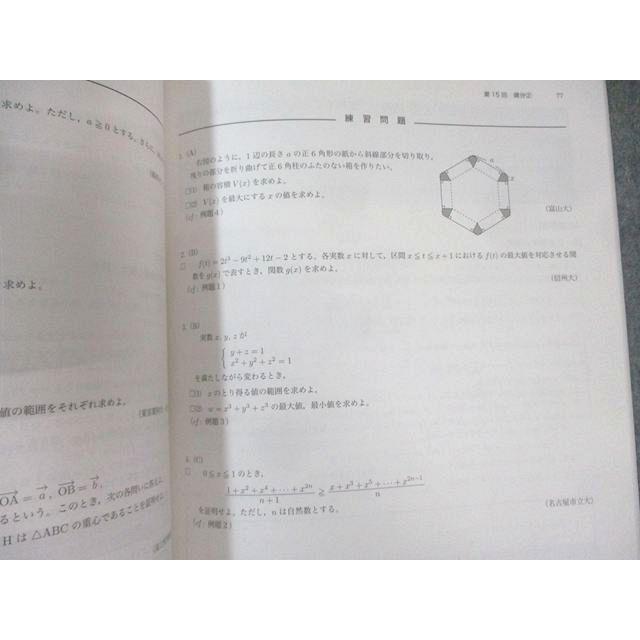 求めよ。ただし，a≧0とする。さらに，
求めよ。
値の範囲をそれぞれ求めよ。
OA = a, OB = b,
るという。このとき，次の各問いに答えよ。
Hは△ABCの重心であることを証明せよ。
第15回 微分② 77
練習問題
1. (A)
右図のように，1辺の長さaの正6角形の紙から斜線部分を切り取り，
残りの部分を折り曲げて正6角柱のふたのない箱を作りたい。
□(1) 箱の容積V(x)を求めよ。
□(2) V(x)を最大にするxの値を求めよ。
(cf：例題4)
a
x
(富山大)
2. (B)
□ f(t)=2t³−9t²+12t−2とする。各実数xに対して，区間x≦t≦x+1におけるf(t)の最大値を対応させる関
数をg(x)で表すとき，関数g(x)を求めよ。
(cf：例題1)
(信州大)
3. (B)
実数x, y, zが
y+z=1
x²+y²+z²=1
を満たしながら変わるとき，
□(1) xのとり得る値の範囲を求めよ。
□(2) w=x³+y³+z³の最大値，最小値を求めよ。
(cf：例題3)
4. (C)
□ 0≦x≦1のとき，
(1+x²+x⁴+⋯+x²ⁿ)/(n+1) ≧ (x+x³+x⁵+⋯+x²ⁿ⁻¹)/n
を証明せよ。ただし，nは自然数とする。
(cf：例題2)
(名古屋市立大)